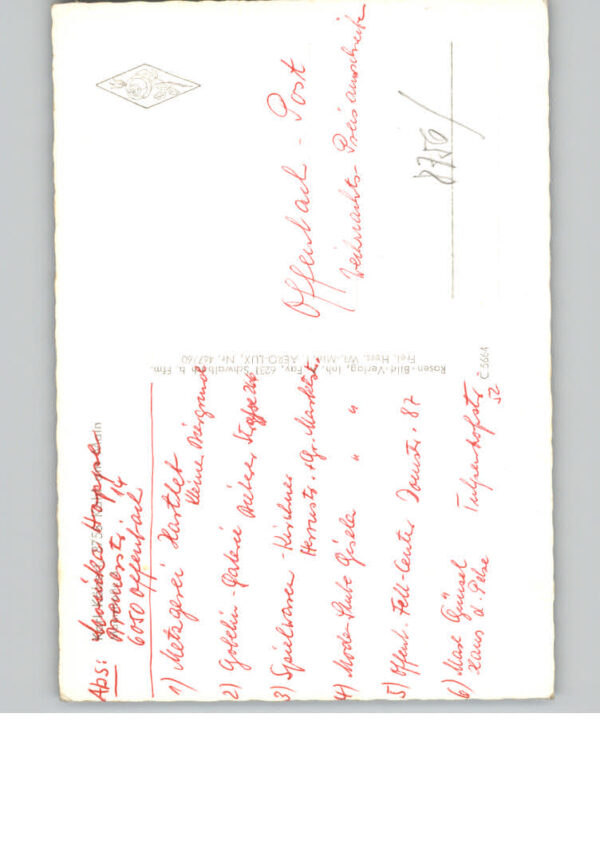 Abs: Hoppe
Bremerstr. 14
6050 Offenbach
1) Metzgerei Hartlet
Kleine Biergrund
2) Gobelin-Galerie Bieber Straße
3) Spielwaren-Kirchner
Herrnstr. Gr. Marktstr.
4) Moden Stube Gisela " "
5) Offenb. Fell-Center Domstr. 87
6) Max Günsel
Haus d. Pelze Tulpenhofstr.
52
Rosen-Bild-Verlag, Inh. Fay, 6231 Schwalbach b. Ffm.
AERO-LUX, Nr. 467/60
C 5664
Offenbach-Post
Weihnachts-Preisausschreiben
8756/